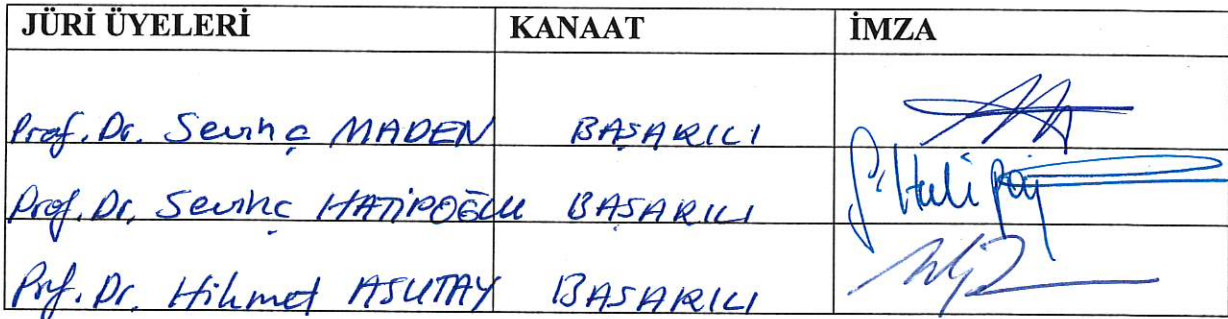 JÜRİ ÜYELERİ KANAAT İMZA
Prof. Dr. Sevinç MADEN BAŞARILI
Prof. Dr. Sevinç HATİPOĞLU BAŞARILI
Prof. Dr. Hikmet ASUTAY BAŞARILI